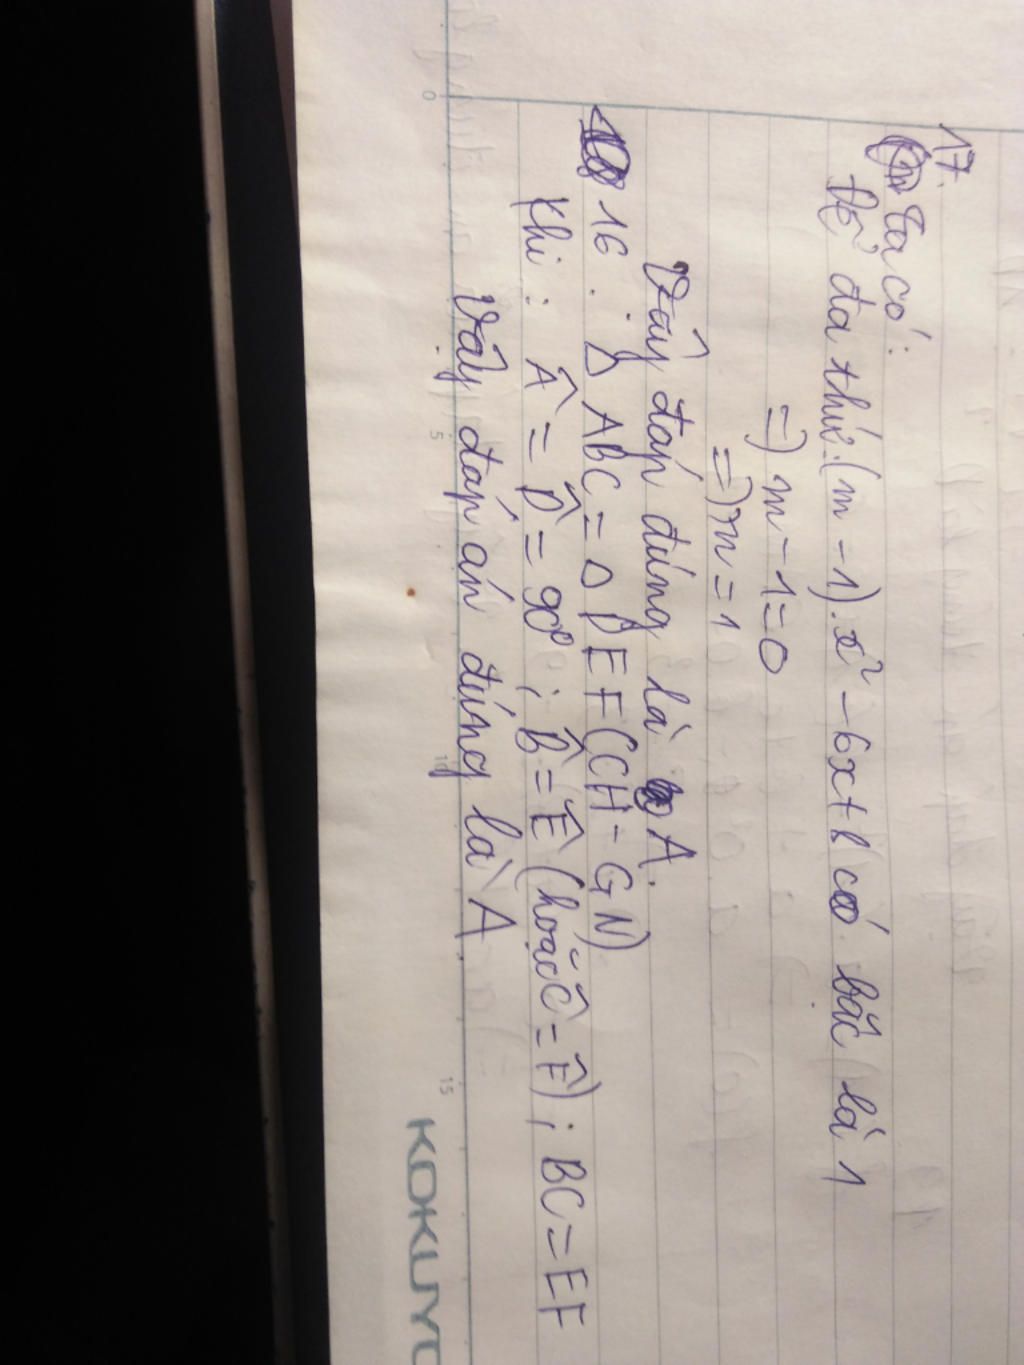 17.
Ta có:
Để đa thức (m - 1).x² - 6x + 8 có bậc là 1
=) m - 1 = 0
=) m = 1
Vậy đáp đúng là A.
16. Δ ABC = Δ DEF (CH - GN)
Khi : Â = D̂ = 90° ; B̂ = Ê (hoặc Ĉ = F̂) ; BC = EF
Vậy đáp án đúng là A
0 5 10 15
KOKUYO